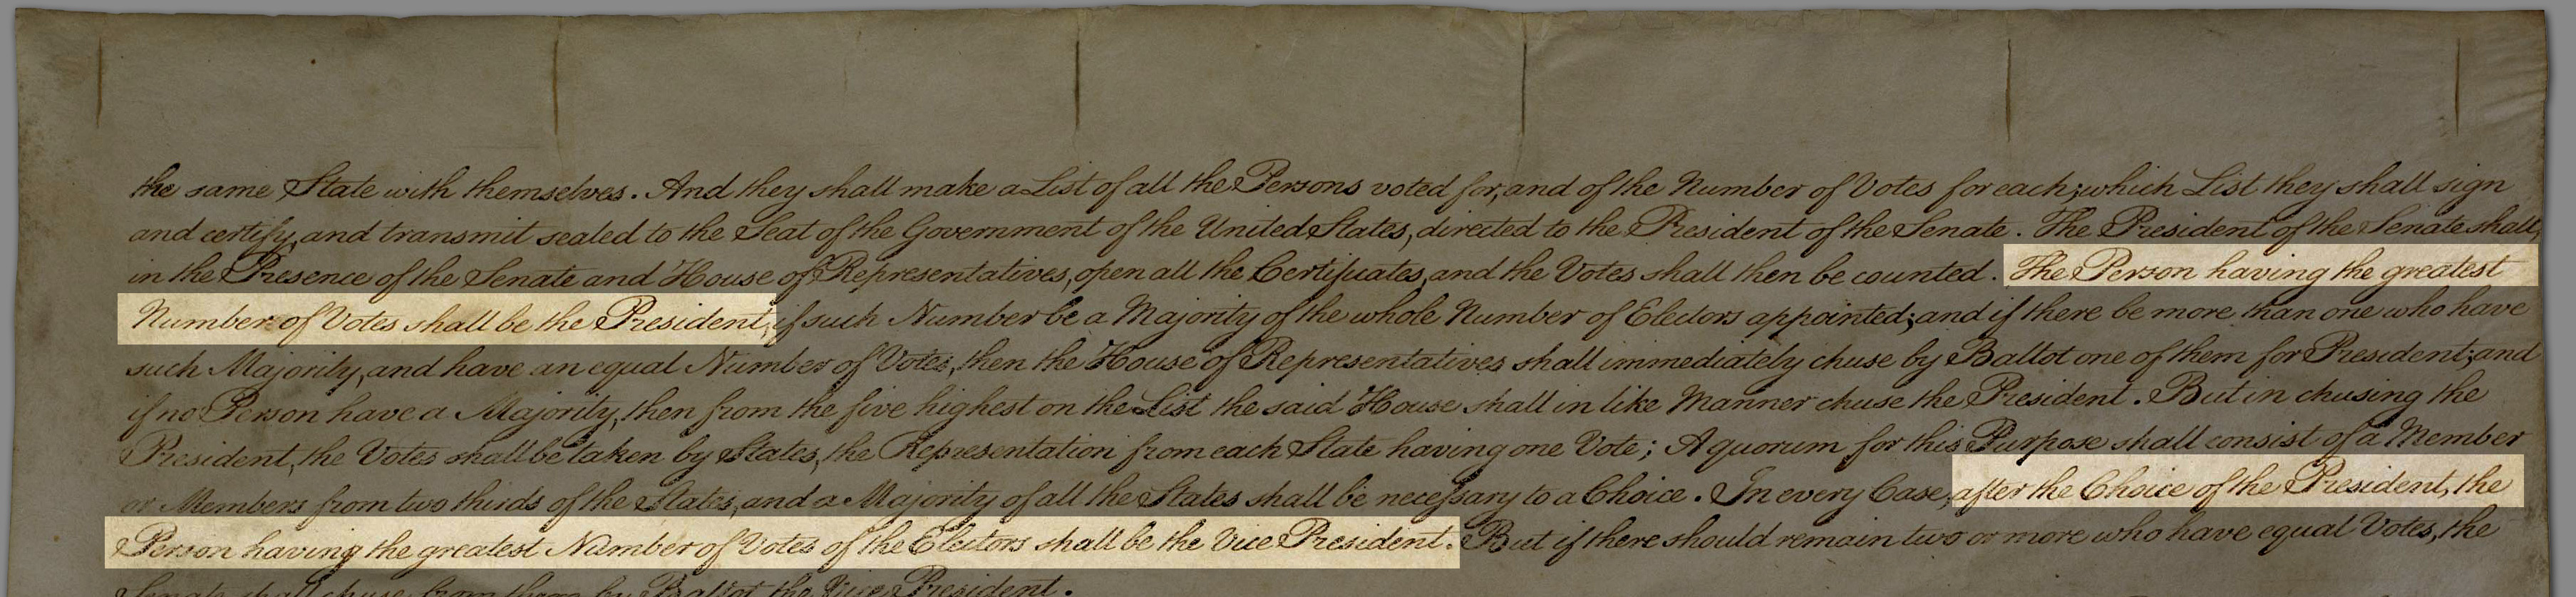 the same State with themselves. And they shall make a List of all the Persons voted for, and of the Number of Votes for each; which List they shall sign
and certify, and transmit sealed to the Seat of the Government of the United States, directed to the President of the Senate. The President of the Senate shall,
in the Presence of the Senate and House of Representatives, open all the Certificates, and the Votes shall then be counted. The Person having the greatest
Number of Votes shall be the President, if such Number be a Majority of the whole Number of Electors appointed; and if there be more than one who have
such Majority, and have an equal Number of Votes, then the House of Representatives shall immediately chuse by Ballot one of them for President; and
if no Person have a Majority, then from the five highest on the List the said House shall in like Manner chuse the President. But in chusing the
President, the Votes shall be taken by States, the Representation from each State having one Vote; A quorum for this Purpose shall consist of a Member
or Members from two thirds of the States, and a Majority of all the States shall be necessary to a Choice. In every Case, after the Choice of the President, the
Person having the greatest Number of Votes of the Electors shall be the Vice President. But if there should remain two or more who have equal Votes, the
Senate shall chuse from them by Ballot the Vice President.